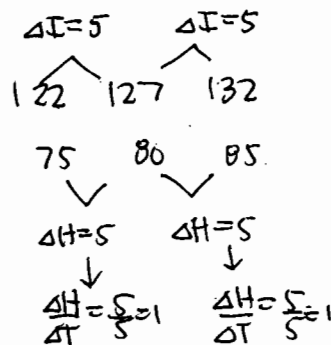 ΔI=5 ΔI=5
122 127 132
75 80 85
ΔH=5 ΔH=5
↓ ↓
ΔH/ΔT=5/5=1 ΔH/ΔT=5/5=1